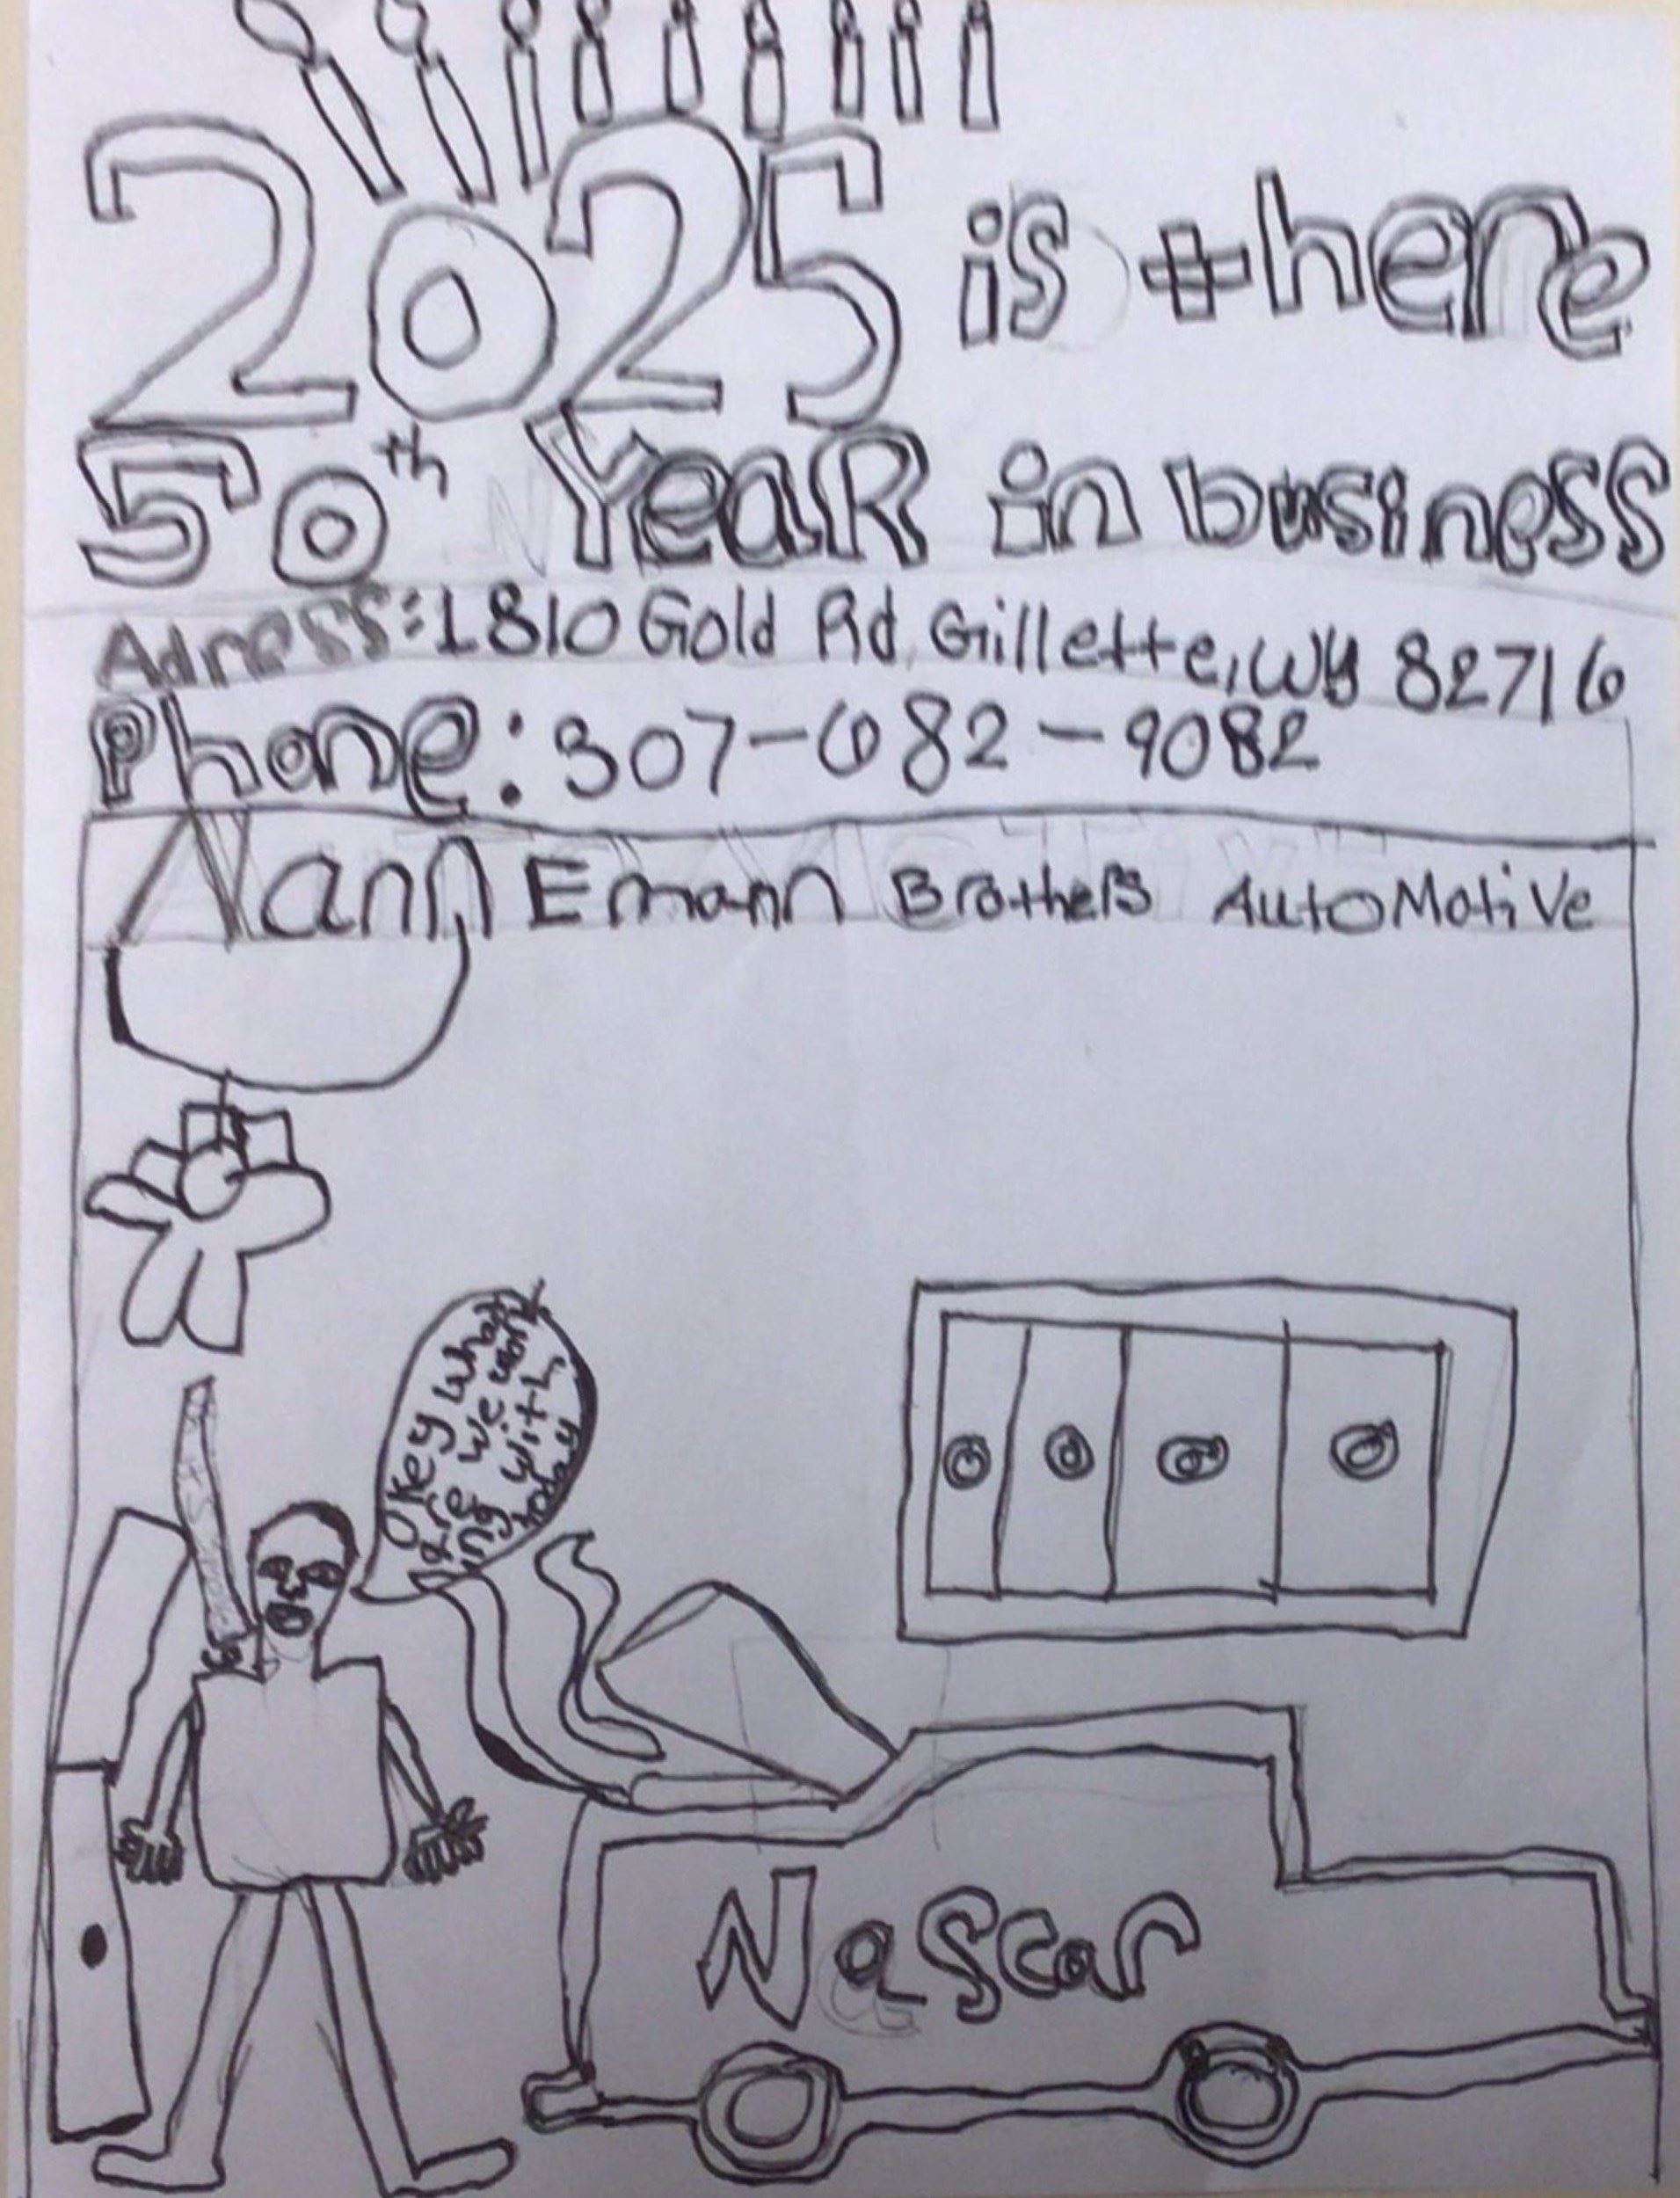 2025 is here
50th Year in business
Adress: 1810 Gold Rd, Gillette, WY 82716
Phone: 307-682-9082
Nann Emann Brothers AutoMotive
Okey what
are we work
ing with
today
Nascar